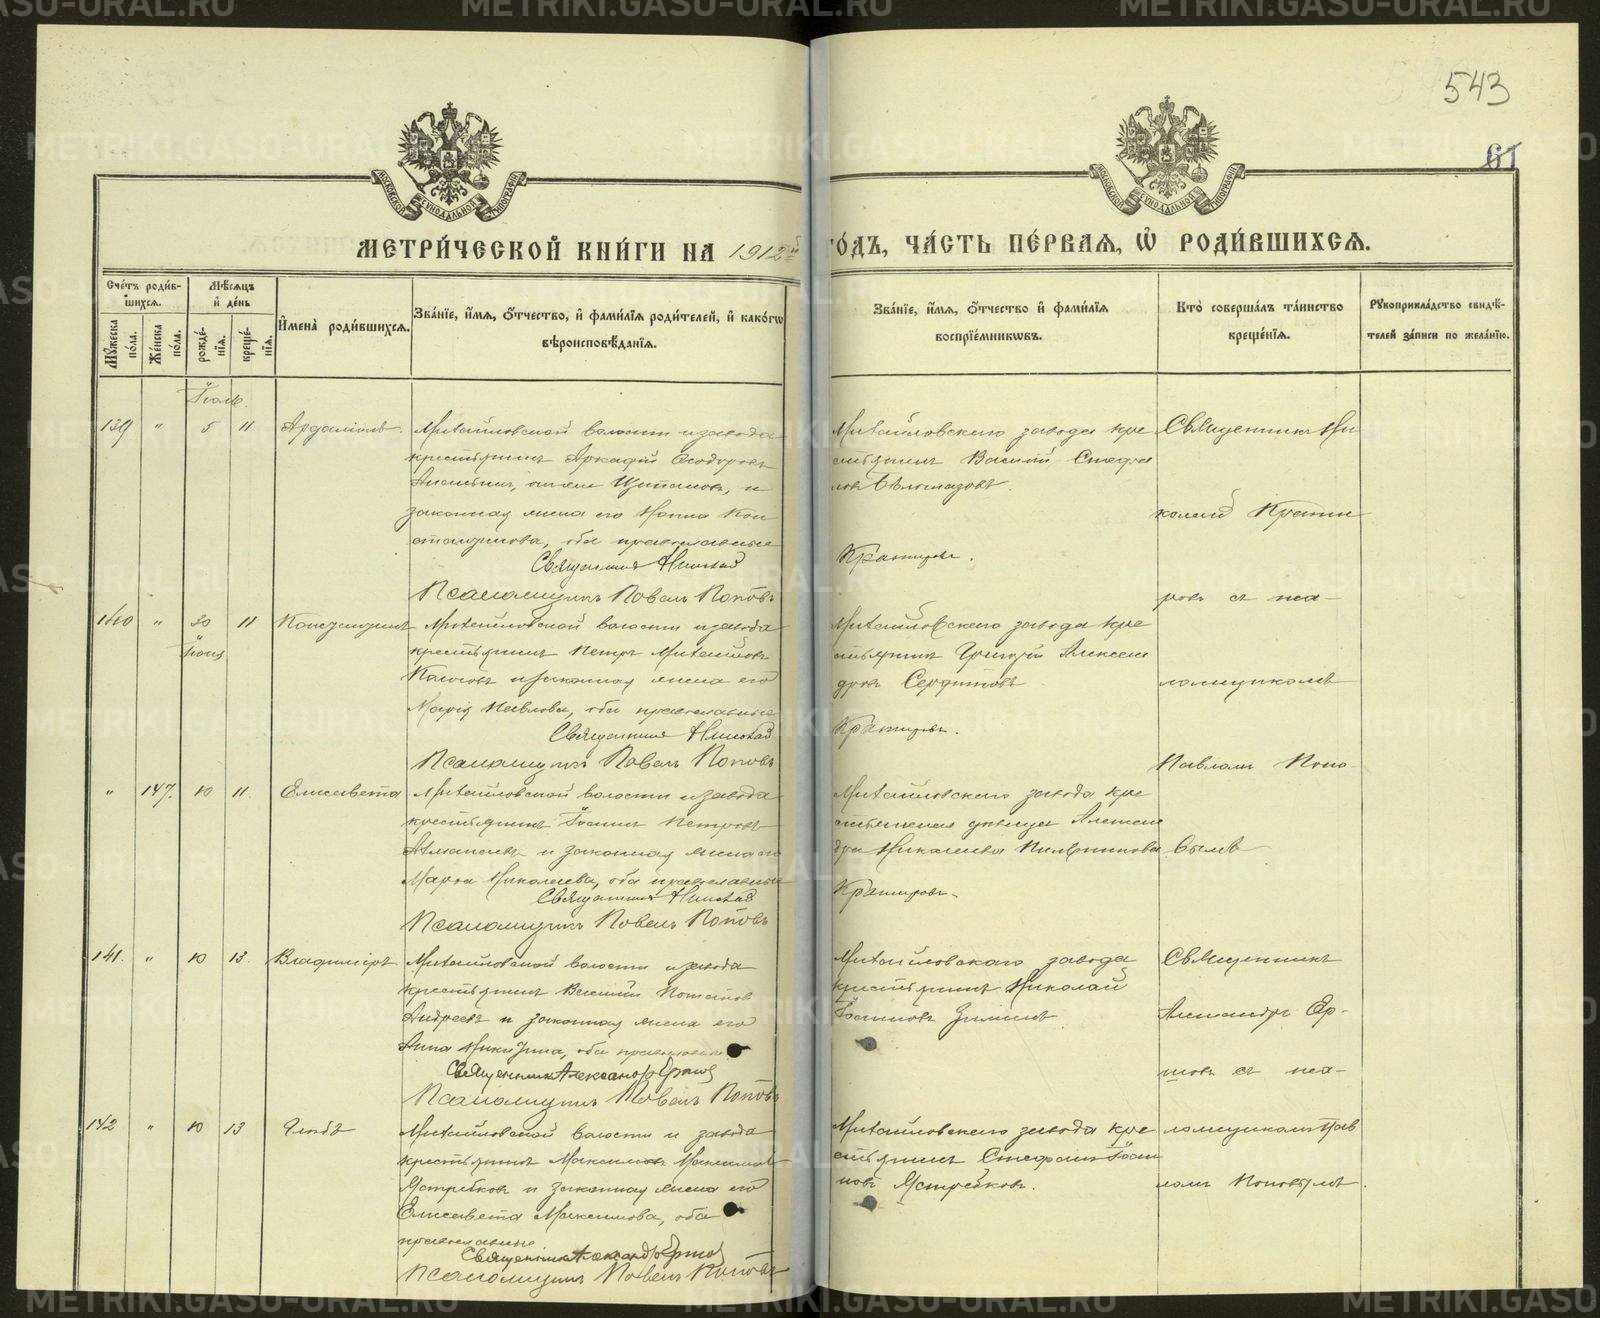 543
61
МОСКОВСКОЙ СѴНОДАЛЬНОЙ ТИПОГРАФІИ
МОСКОВСКОЙ СѴНОДАЛЬНОЙ ТИПОГРАФІИ
МЕТРИ́ЧЕСКОЙ КНИ́ГИ НА 1912й ГО́ДЪ, ЧА́СТЬ ПЕ́РВАЯ, Ѡ҆ РОДИ́ВШИХСЯ.
Сче́тъ роди́в-
шихся.
Му́жеска по́ла.
Же́нска по́ла.
Мѣ́сяцъ и҆ де́нь
рожде́-нїя.
креще́-нїя.
И҆мена̀ роди́вшихся.
Зва́нїе, и҆́мя, ѻ҆́тчество, и҆ фами́лїя роди́телей, и҆ како́гѡ
вѣроисповѣ́данїя.
Зва́нїе, и҆́мя, ѻ҆́тчество и҆ фами́лїя
воспрїе́мникѡвъ.
Кто̀ соверша́лъ та́инство
креще́нїя.
Рꙋкоприкла́дство свидѣ́-
телей за́писи по жела́нїю.
Іюль.
139 " 5 11 Ардаліонъ.
Михайловской волости и завода
крестьянинъ Аркадій Ѳеодоровъ
и
законная жена его Нонна Кон
стантинова, оба православные
Священникъ Николай
Псаломщикъ Павелъ Поповъ
Михайловскаго завода кре
стьянинъ Василій Стефа
новъ Бѣлоглазовъ.
Кратировъ.
Священникъ Ни
колай Крати
ровъ съ пса-
ломщикомъ
Павломъ Попо-
вымъ
140 " 30 11 Константинъ
Іюня
Михайловской волости и завода
крестьянинъ Петръ Михайловъ
и законная жена его
Марія Павлова, оба православные
Священникъ Николай
Псаломщикъ Павелъ Поповъ
Михайловскаго завода кре
стьянинъ Григорій Алексан
дровъ
Кратировъ.
" 147. 10 11. Елисавета
Михайловской волости и завода
крестьянинъ Іоаннъ Петровъ
и законная жена его
Марѳа Николаева, оба православные
Священникъ Николай
Псаломщикъ Павелъ Поповъ
Михайловскаго завода кре
стьянская дѣвица Алексан
дра Николаева
Кратировъ.
141. " 10 13. Владиміръ
Михайловской волости и завода
крестьянинъ Василій
Андреевъ и законная жена его
Анна Никитина, оба православные
Священникъ Александръ
Псаломщикъ Павелъ Поповъ
Михайловскаго завода
крестьянинъ Николай
Іоанновъ Зиминъ
Священникъ
Александръ Ер-
шовъ съ пса-
ломщикомъ Пав
ломъ Поповымъ.
142 " 10 13 Глѣбъ
Михайловской волости и завода
крестьянинъ Максимъ Максимовъ
Ястребковъ и законная жена его
Елисавета Максимова, оба
православные
Священникъ Александръ
Псаломщикъ Павелъ Поповъ
Михайловскаго завода кре
стьянинъ Стефанъ Іоан
новъ Ястребковъ.
METRIKI.GASO-URAL.RU